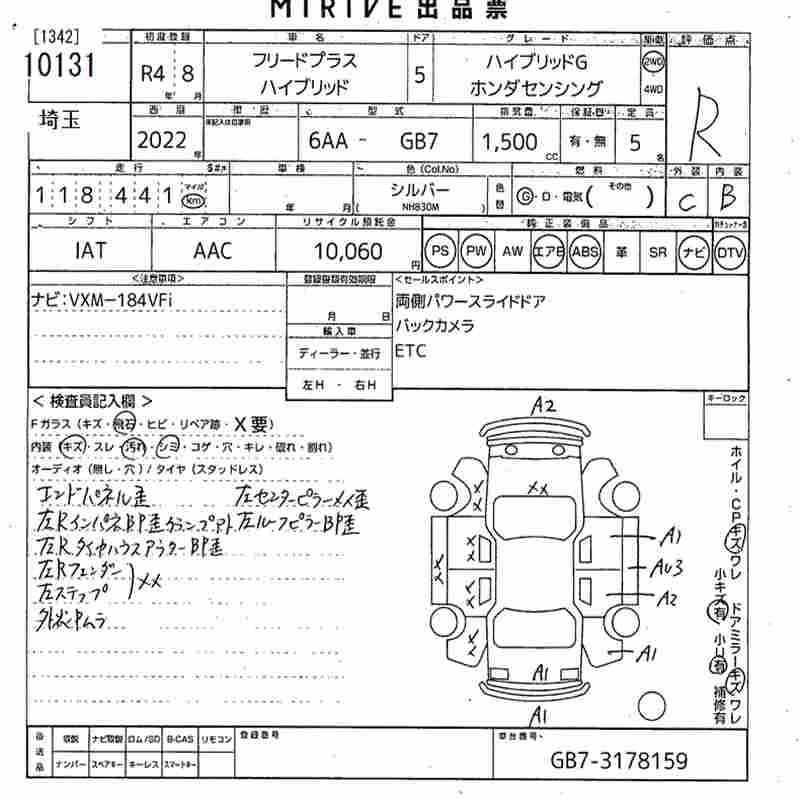 MIRIVE 出品票
[1342]
10131
埼玉
初度登録
R4 8
年 月
車名
フリードプラス
ハイブリッド
ドア
5
グレード
ハイブリッドG
ホンダセンシング
駆動
2WD
4WD
評価点
R
西暦
2022
年
車歴
型式
6AA - GB7
排気量
1,500
CC
保証書
有・無
定員
5
名
走行
118441
マイル
km
車検
年 月
色(Col.No)
シルバー
( NH830M )
色替
燃料
G・D・電気( その他 )
外装
C
内装
B
シフト
IAT
エアコン
AAC
リサイクル預託金
10,060
円
純正装備品
PS PW AW エアB ABS 革 SR ナビ DTV
<注意事項>
ナビ:VXM-184VFi
登録書類有効期限
月 日
輸入車
ディーラー・並行
左H - 右H
<セールスポイント>
両側パワースライドドア
バックカメラ
ETC
<検査員記入欄>
Fガラス(キズ・飛石・ヒビ・リペア跡・X要)
内装(キズ・スレ・汚れ・シミ・コゲ・穴・キレ・破れ・割れ)
オーディオ(無し・穴)/タイヤ(スタッドレス)
エンドパネル歪
左センターピラーメイ歪
左RインパネBP歪クランプアト
左ルーフピラーBP歪
左RタイヤハウスアウターBP歪
左Rフェンダー
左ステップ
XX
外板ムラ
キーロック
A2
XX
XX
XX
XX
XX
XX
A1
AU3
A2
A1
A1
A1
ホイル・CPキズワレ
ドアミラーキズワレ
小キズ有 小U有 補修有
後送品
取説 ナビ取説 ロム/SD B-CAS リモコン
ナンバー スペアキー キーレス スマートキー
登録番号
車台番号
GB7-3178159